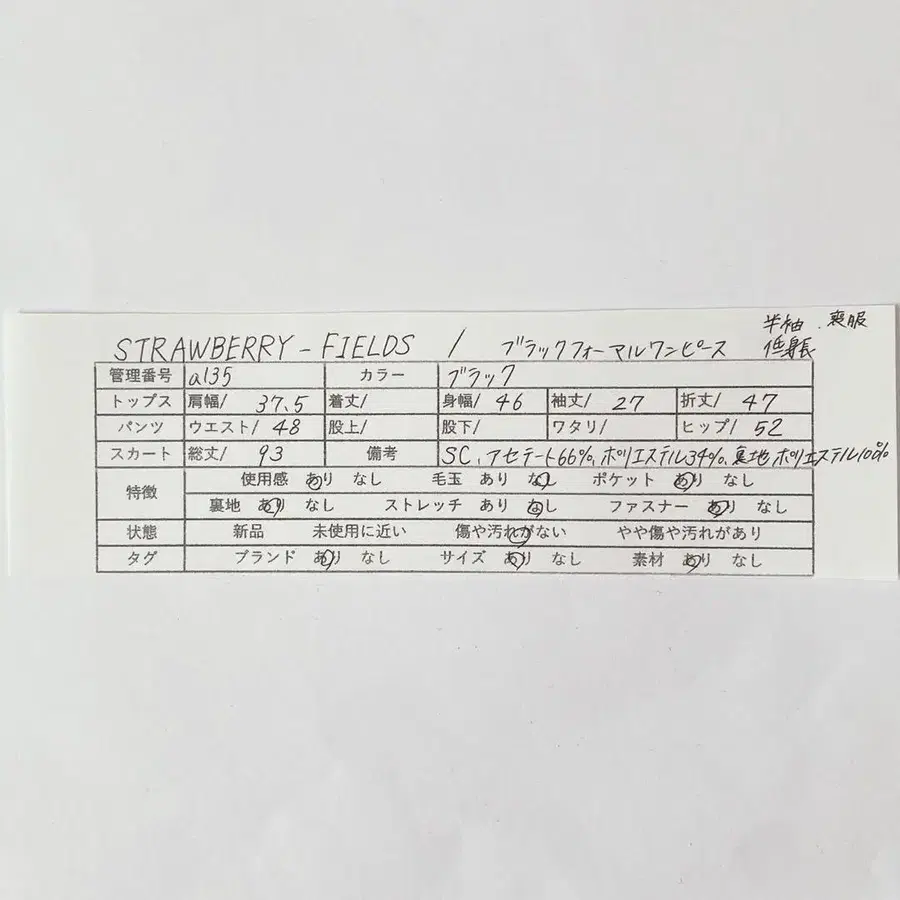 半袖、喪服
STRAWBERRY-FIELDS / ブラックフォーマルワンピース 低身長
管理番号 a135 カラー ブラック
トップス 肩幅/ 37.5 着丈/ 身幅/ 46 袖丈/ 27 折丈/ 47
パンツ ウエスト/ 48 股上/ 股下/ ワタリ/ ヒップ/ 52
スカート 総丈/ 93 備考 SC、アセテート66%、ポリエステル34%、裏地ポリエステル100%
特徴 使用感 あり なし 毛玉 あり なし ポケット あり なし
裏地 あり なし ストレッチ あり なし ファスナー あり なし
状態 新品 未使用に近い 傷や汚れがない やや傷や汚れがあり
タグ ブランド あり なし サイズ あり なし 素材 あり なし